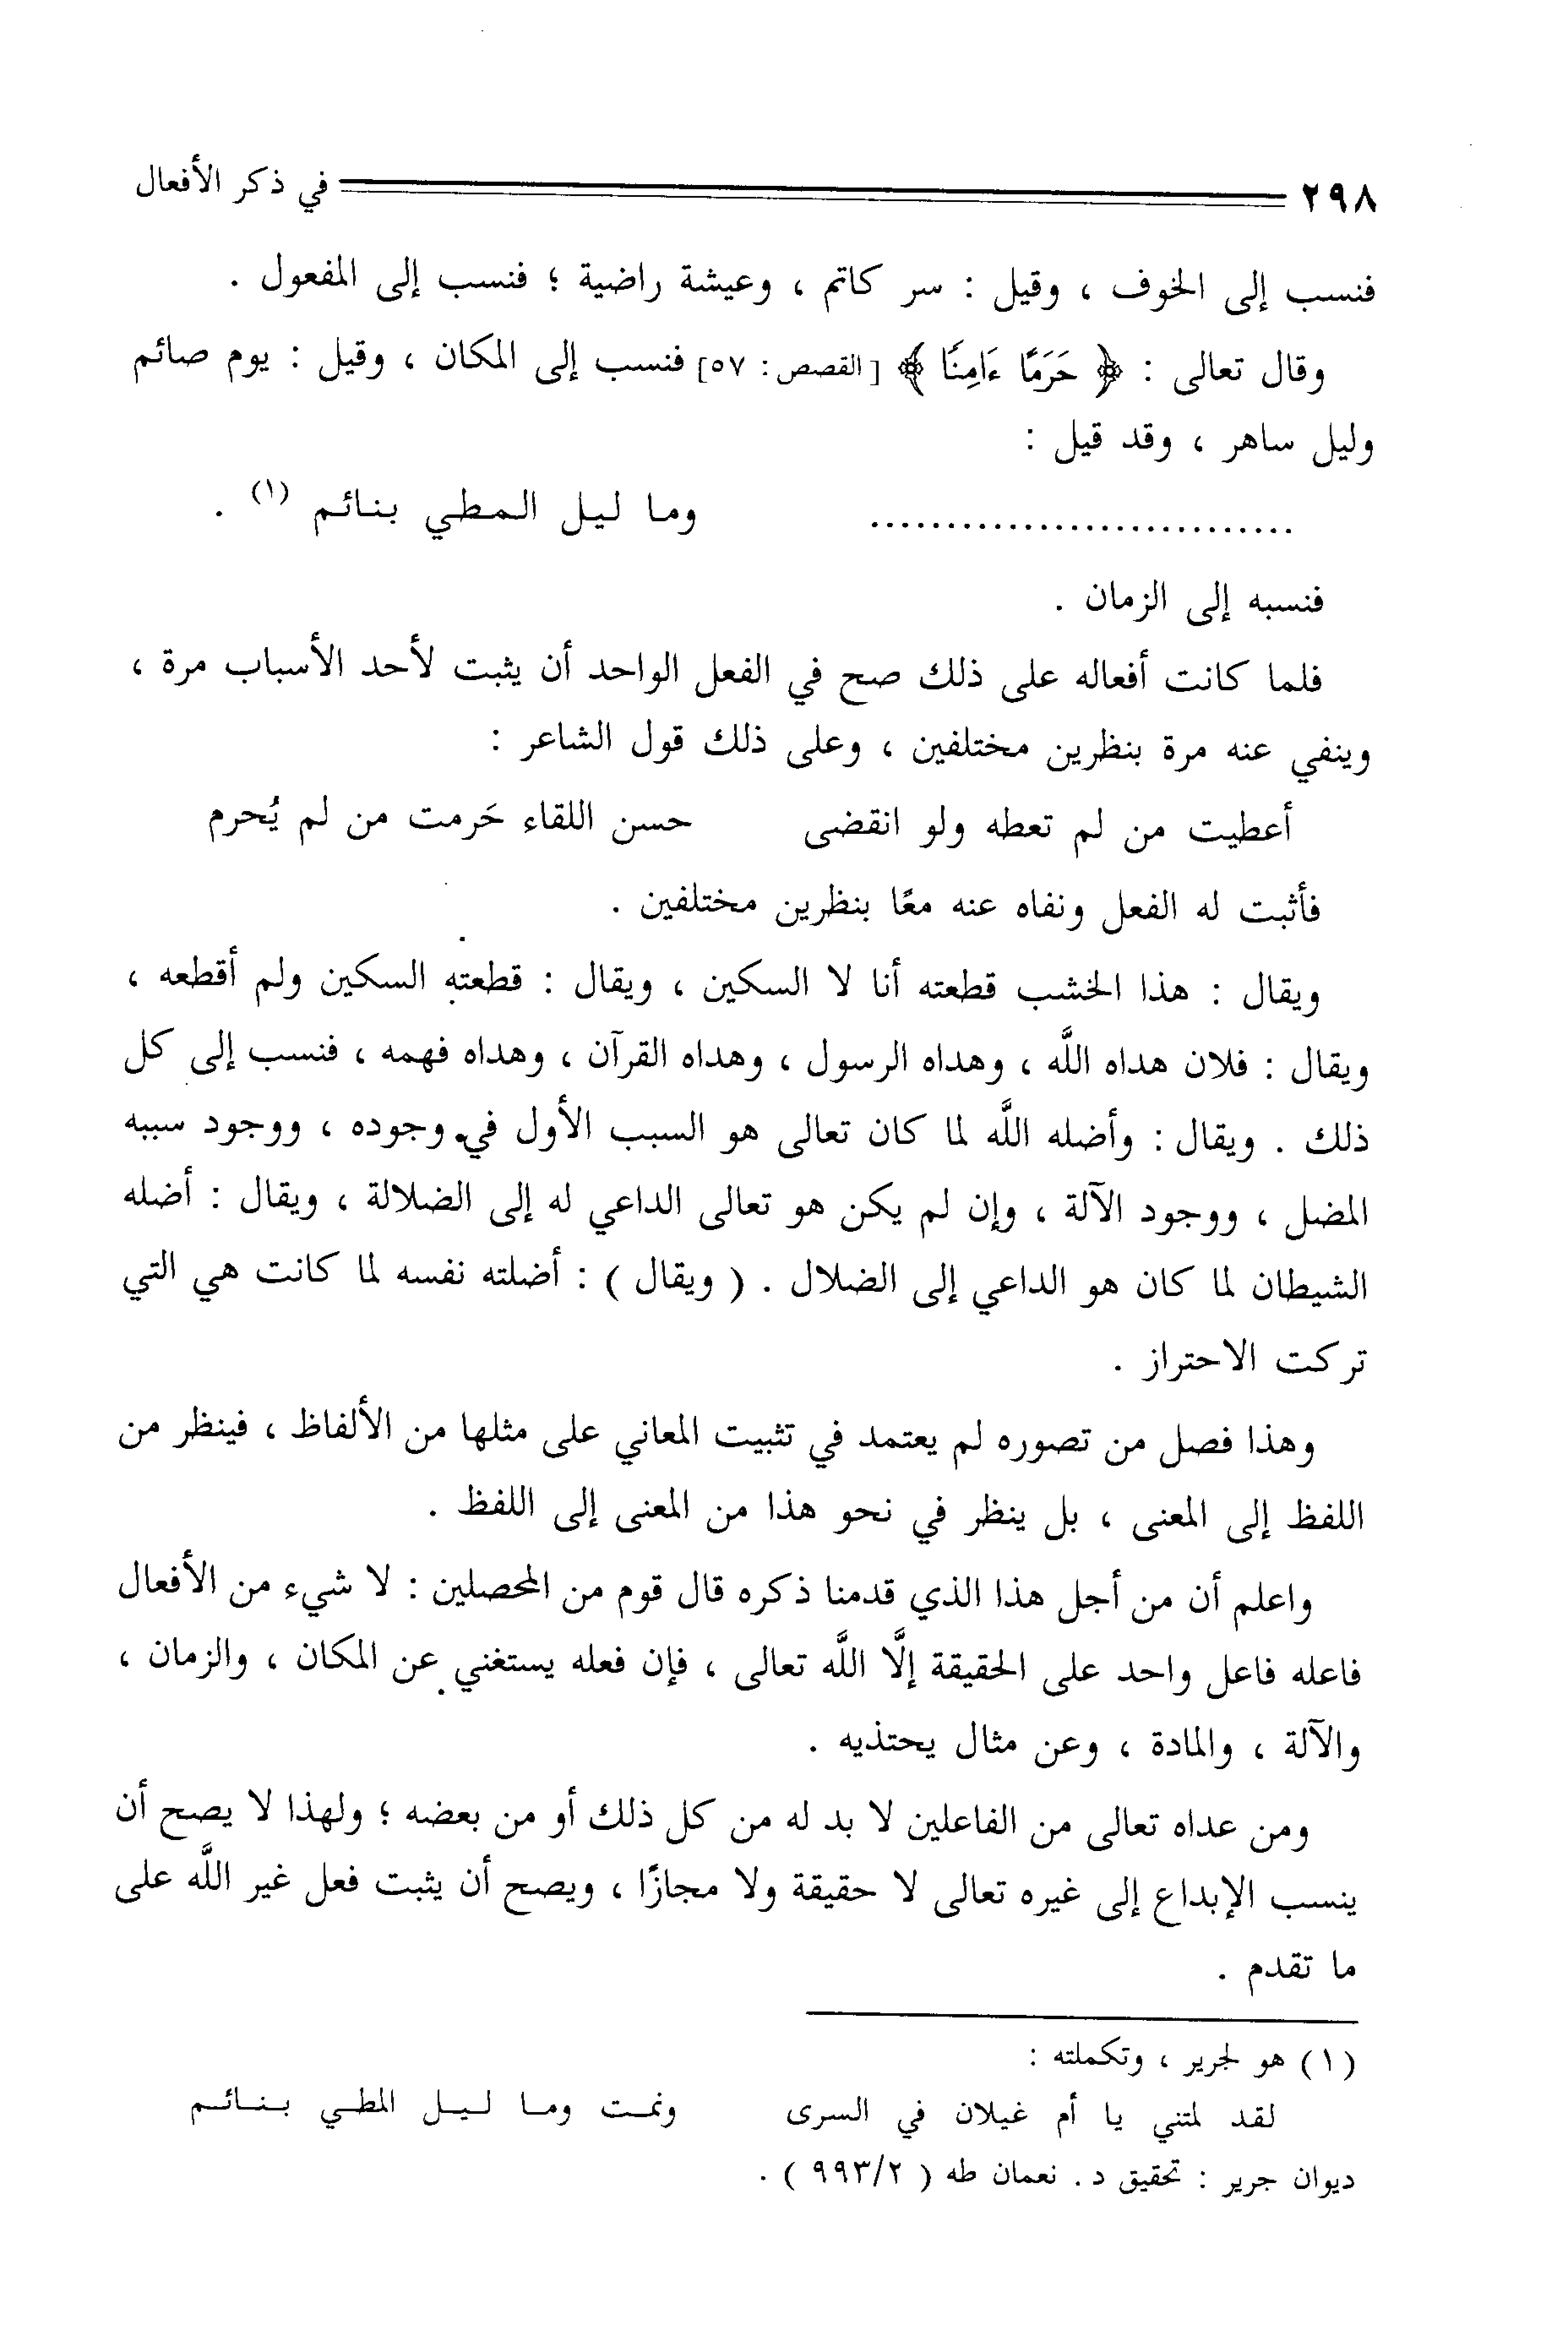 ٢٩٨ في ذكر الأفعال
فنسب إلى الخوف ، وقيل : سر كاتم ، وعيشة راضية ؛ فنسب إلى المفعول .
وقال تعالى : ﴿ حَرَمًا ءَامِنًا ﴾ [ القصص : ٥٧] فنسب إلى المكان ، وقيل : يوم صائم
وليل ساهر ، وقد قيل :
............................ وما ليل المطي بنائم (١) .
فنسبه إلى الزمان .
فلما كانت أفعاله على ذلك صح في الفعل الواحد أن يثبت لأحد الأسباب مرة ،
وينفي عنه مرة بنظرين مختلفين ، وعلى ذلك قول الشاعر :
أعطيت من لم تعطه ولو انقضى حسن اللقاء حَرمت من لم يُحرم
فأثبت له الفعل ونفاه عنه معًا بنظرين مختلفين .
ويقال : هذا الخشب قطعته أنا لا السكين ، ويقال : قطعته السكين ولم أقطعه ،
ويقال : فلان هداه اللَّه ، وهداه الرسول ، وهداه القرآن ، وهداه فهمه ، فنسب إلى كل
ذلك . ويقال : وأضله اللَّه لما كان تعالى هو السبب الأول في وجوده ، ووجود سببه
المضل ، ووجود الآلة ، وإن لم يكن هو تعالى الداعي له إلى الضلالة ، ويقال : أضله
الشيطان لما كان هو الداعي إلى الضلال . ( ويقال ) : أضلته نفسه لما كانت هي التي
تركت الاحتراز .
وهذا فصل من تصوره لم يعتمد في تثبيت المعاني على مثلها من الألفاظ ، فينظر من
اللفظ إلى المعنى ، بل ينظر في نحو هذا من المعنى إلى اللفظ .
واعلم أن من أجل هذا الذي قدمنا ذكره قال قوم من المحصلين : لا شيء من الأفعال
فاعله فاعل واحد على الحقيقة إلَّا اللَّه تعالى ، فإن فعله يستغني عن المكان ، والزمان ،
والآلة ، والمادة ، وعن مثال يحتذيه .
ومن عداه تعالى من الفاعلين لا بد له من كل ذلك أو من بعضه ؛ ولهذا لا يصح أن
ينسب الإبداع إلى غيره تعالى لا حقيقة ولا مجازًا ، ويصح أن يثبت فعل غير اللَّه على
ما تقدم .
(١) هو لجرير ، وتكملته :
لقد لمتني يا أم غيلان في السرى ونمت وما ليل المطي بنائم
ديوان جرير : تحقيق د . نعمان طه ( ٩٩٣/٢ ) .